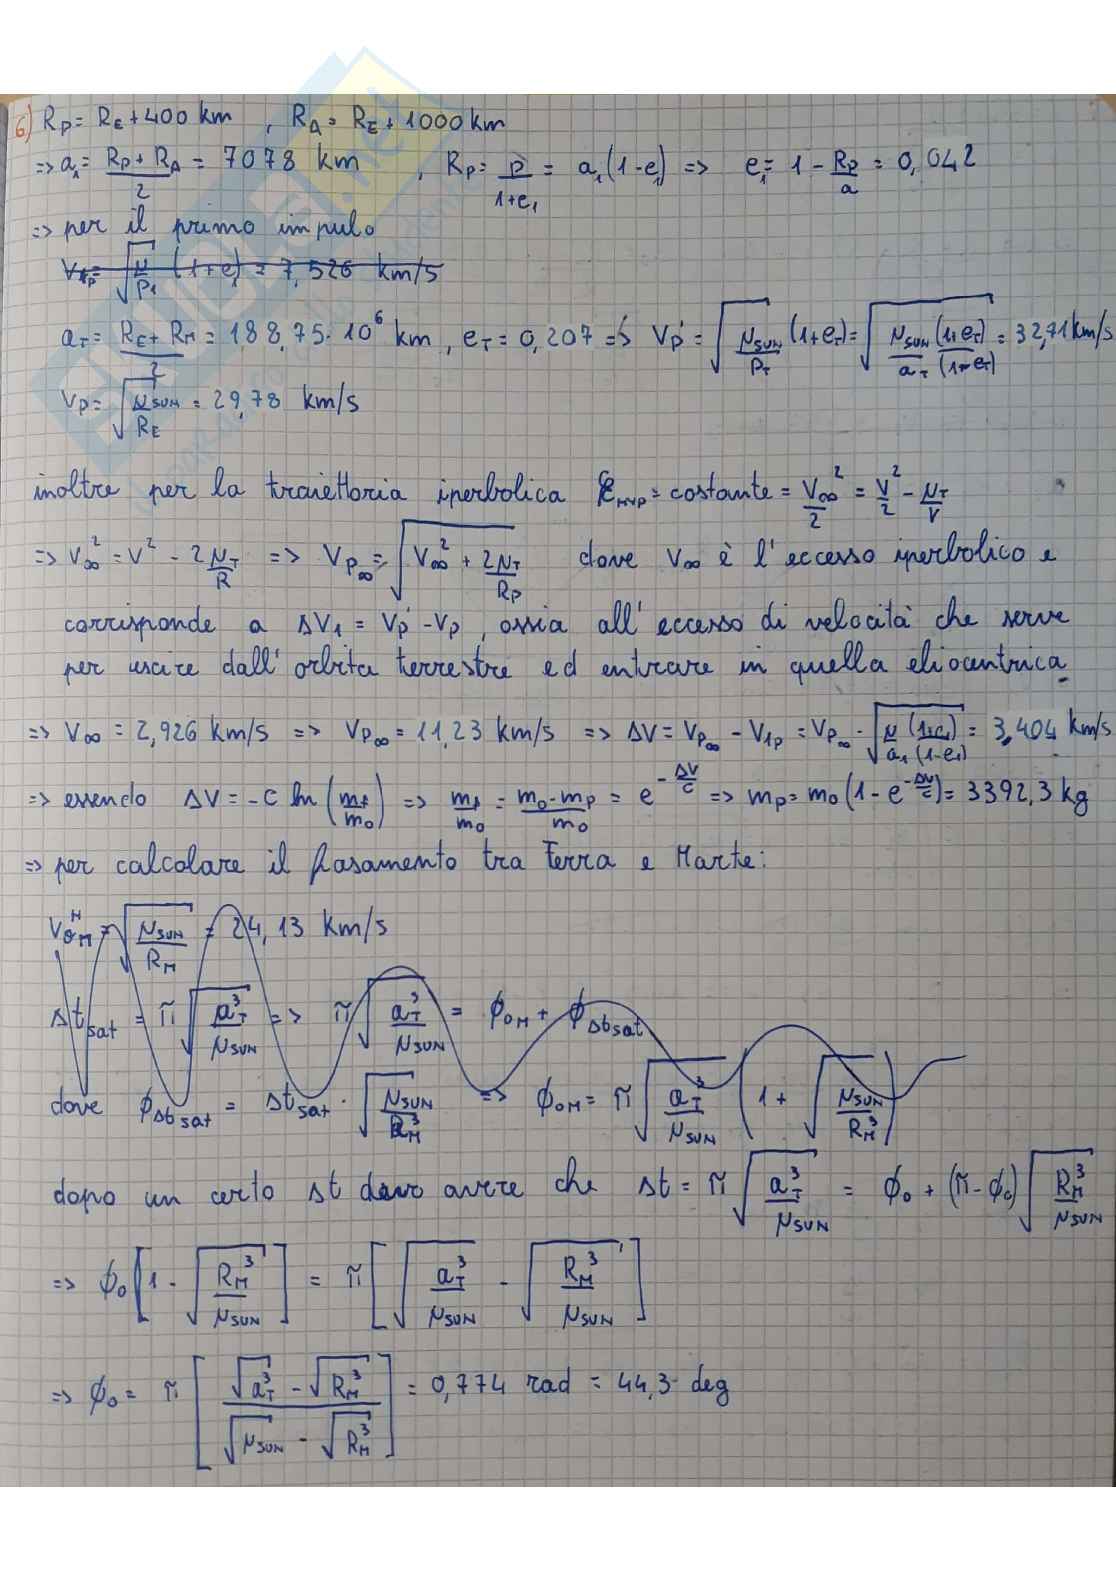 6) R_P = R_E + 400 km , R_A = R_E + 1000 km
=> a_1 = (R_P + R_A)/2 = 7078 km , R_P = p/(1+e_1) = a_1(1-e_1) => e_1 = 1 - R_P/a = 0,042
=> per il primo impulo
V_1p = √(μ/P_1) (1+e_1) = 7,526 km/s
a_T = (R_E + R_M)/2 = 188,75·10^6 km , e_T = 0,207 => V_P' = √(μ_SUN/P_T) (1+e_T) = √(μ_SUN/a_T (1+e_T)/(1-e_T)) = 32,71 km/s
V_P = √(μ_SUN/R_E) = 29,78 km/s
inoltre per la traiettoria iperbolica ℰ_HYP = costante = V_∞^2/2 = V^2/2 - μ_T/V
=> V_∞^2 = V^2 - 2μ_T/R => V_P∞ = √(V_∞^2 + 2μ_T/R_P) dove V_∞ è l'eccesso iperbolico e
corrisponde a ΔV_1 = V_P' - V_P , ossia all'eccesso di velocità che serve
per uscire dall'orbita terrestre ed entrare in quella eliocentrica
=> V_∞ = 2,926 km/s => V_P∞ = 11,23 km/s => ΔV = V_P∞ - V_1p = V_P∞ - √(μ/a_1 (1+e_1)/(1-e_1)) = 3,404 km/s
=> essendo ΔV = -c ln(m_f/m_0) => m_f/m_0 = (m_0 - m_P)/m_0 = e^(-ΔV/c) => m_P = m_0(1 - e^(-ΔV/c)) = 3392,3 kg
=> per calcolare il fasamento tra Terra e Marte:
V_θM^M = √(μ_SUN/R_M) = 24,13 km/s
Δt_sat = π√(a_T^3/μ_SUN) => π√(a_T^3/μ_SUN) = ϕ_0M + ϕ_Δt sat
dove ϕ_Δt sat = Δt_sat · √(μ_SUN/R_M^3) => ϕ_0M = π√(a_T^3/μ_SUN) (1 + √(μ_SUN/R_M^3))
dopo un certo Δt devo avere che Δt = π√(a_T^3/μ_SUN) = ϕ_0 + (π - ϕ_0)√(R_M^3/μ_SUN)
=> ϕ_0 [1 - √(R_M^3/μ_SUN)] = π [√(a_T^3/μ_SUN) - √(R_M^3/μ_SUN)]
=> ϕ_0 = π [(√a_T^3 - √R_M^3)/(√μ_SUN - √R_M^3)] = 0,774 rad = 44,3 deg